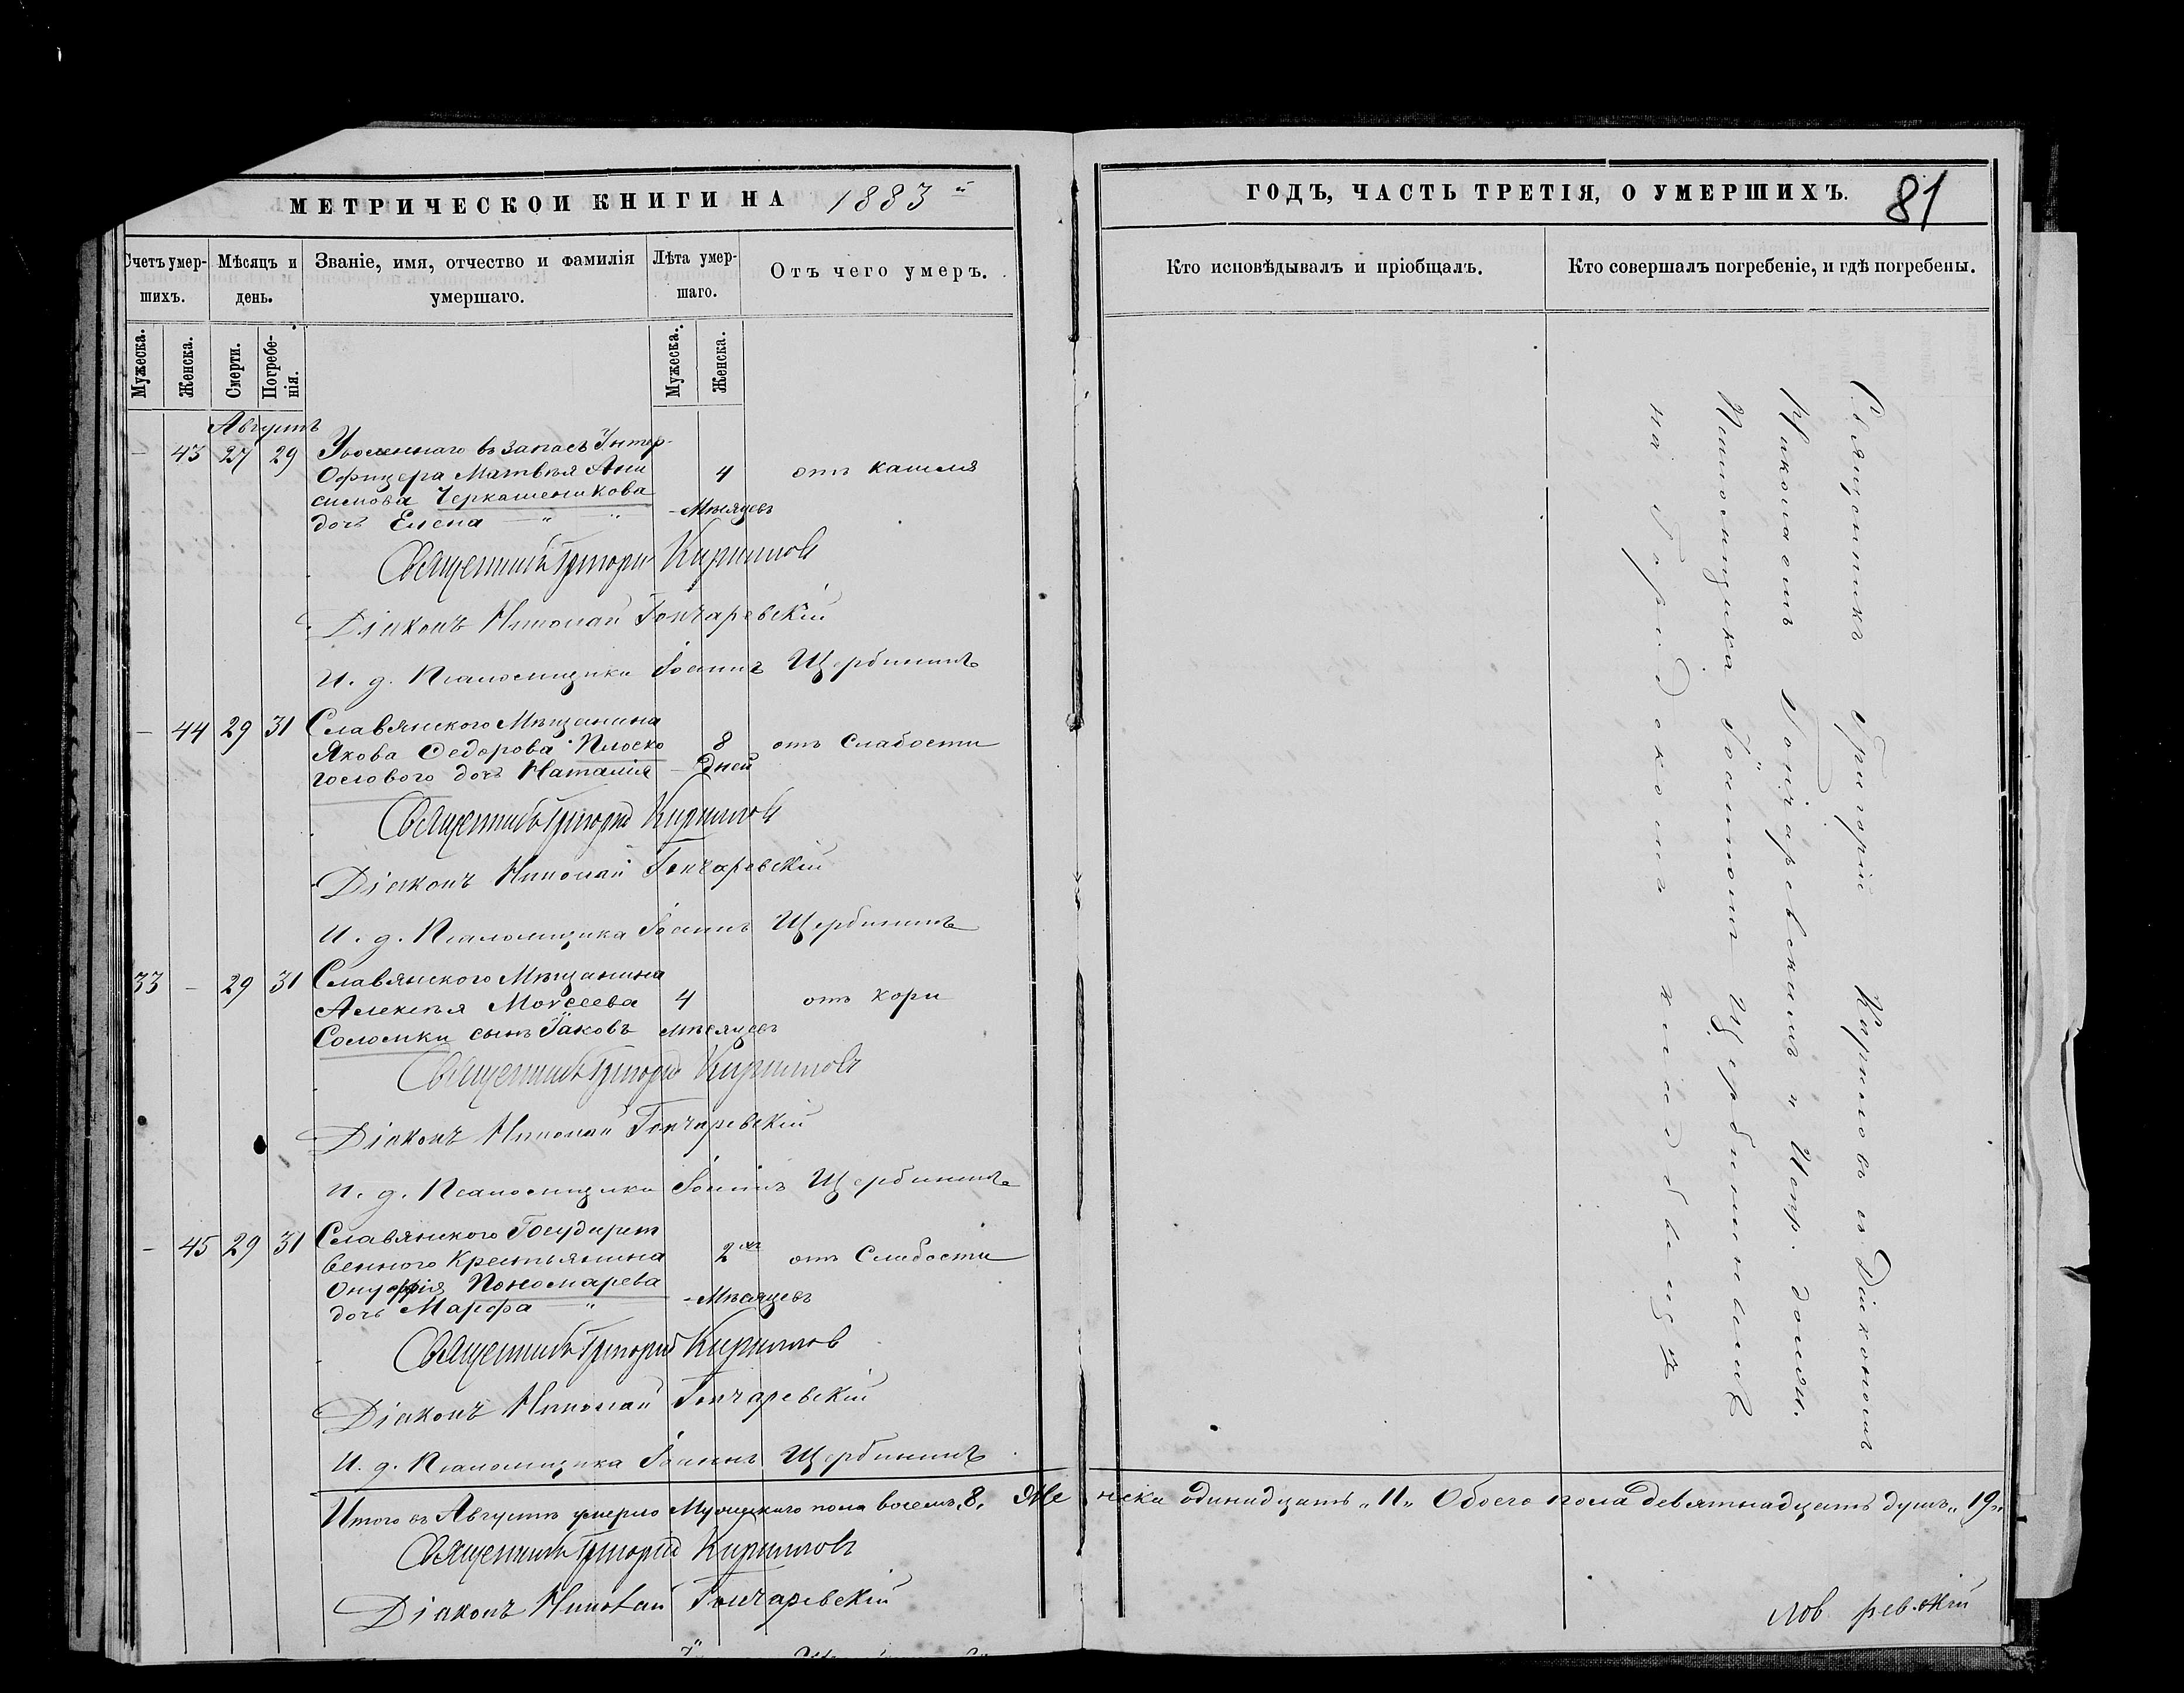 МЕТРИЧЕСКОЙ КНИГИ НА 1883 й
Счетъ умер-
шихъ.
Мѣсяцъ и
день.
Званіе, имя, отчество и фамилія
умершаго.
Лѣта умер-
шаго.
Отъ чего умеръ.
Мужеска.
Женска.
Смерти.
Погребе-
нія.
Мужеска.
Женска.
Августъ
– 43 27 29 Уволеннаго въ запасъ Унтер-
Офицера Матвѣя Ани 4 отъ кашля
симова Черкашеникова
дочь Елена – " " - Мѣсяцевъ
Священникъ Григорій Кириловъ
Діаконъ Николай Гончаревскій
И. д. Псаломщика Іоаннъ Щербининъ
– 44 29 31 Славянскаго Мѣщанина
Якова Ѳедорова Плоско 8 отъ Слабости
голового дочь Наталія – Дней
Священникъ Григорій Кириловъ
Діаконъ Николай Гончаревскій
И. д. Псаломщика Іоаннъ Щербининъ
33 – 29 31 Славянского Мѣщанина
Алексѣя Моѵсеева 4 отъ кори
Соломки сынъ Іаковъ мѣсяцевъ
Священникъ Григорій Кириловъ
Діаконъ Николай Гончаревскій
И. д. Псаломщика Іоаннъ Щербининъ
– 45 29 31 Славянского Государст
венного Крестьянина 2хъ отъ Слабости
Онуфрія Пономарева
дочь Марфа " - Мѣсяцевъ
Священникъ Григорій Кириловъ
Діаконъ Николай Гончаревскій
И. д. Псаломщика Іоаннъ Щербининъ
Итого въ Августѣ умерло Мужескаго пола восемь „8„ Же
Священникъ Григорій Кириловъ
Діаконъ Николай Гончаревскій
ГОДЪ, ЧАСТЬ ТРЕТІЯ, О УМЕРШИХЪ.
81
Кто исповѣдывалъ и пріобщалъ.
Кто совершалъ погребеніе, и гдѣ погребены.
Священникъ Григорій Кириловъ съ Діакономъ
Николаемъ Гончаревскимъ и Испр. должн.
Псаломщика Іоанномъ Щербининымъ
на Городскомъ кладбищѣ
нска одинадцать „11„ Обоего пола девятнадцать душъ „19„
лов рев.скій